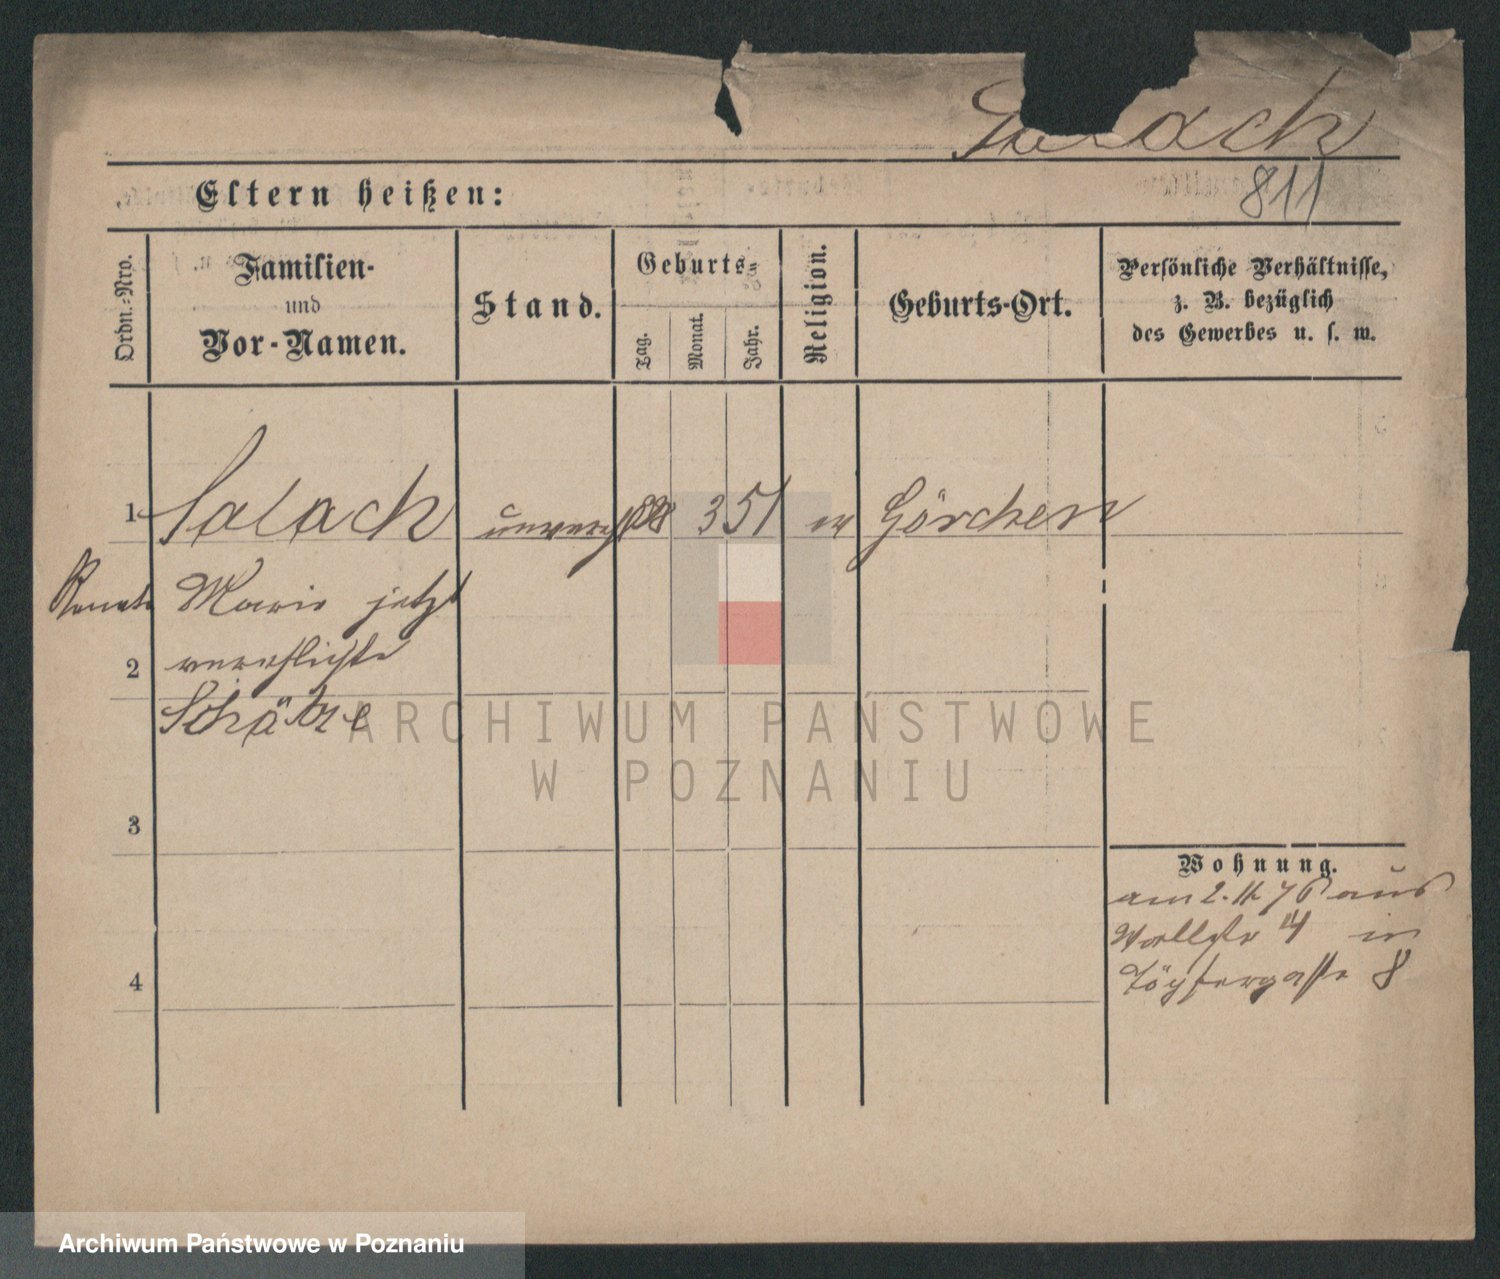 Salach
811
Eltern heißen:
Ordn.-Nro.
Familien-
und
Vor-Namen.
Stand.
Geburts-
Tag.
Monat.
Jahr.
Religion.
Geburts-Ort.
Persönliche Verhältnisse,
z. B. bezüglich
des Gewerbes u. s. w.
1 Salach unverehl 3 51 ev Görchen
Marie jetzt
2 verehlichte
Schätze
ARCHIWUM PAŃSTWOWE
W POZNANIU
3
Wohnung.
am 2. 11 76 aus
Wallstr 4 in
4 Töpfergasse 8
Archiwum Państwowe w Poznaniu